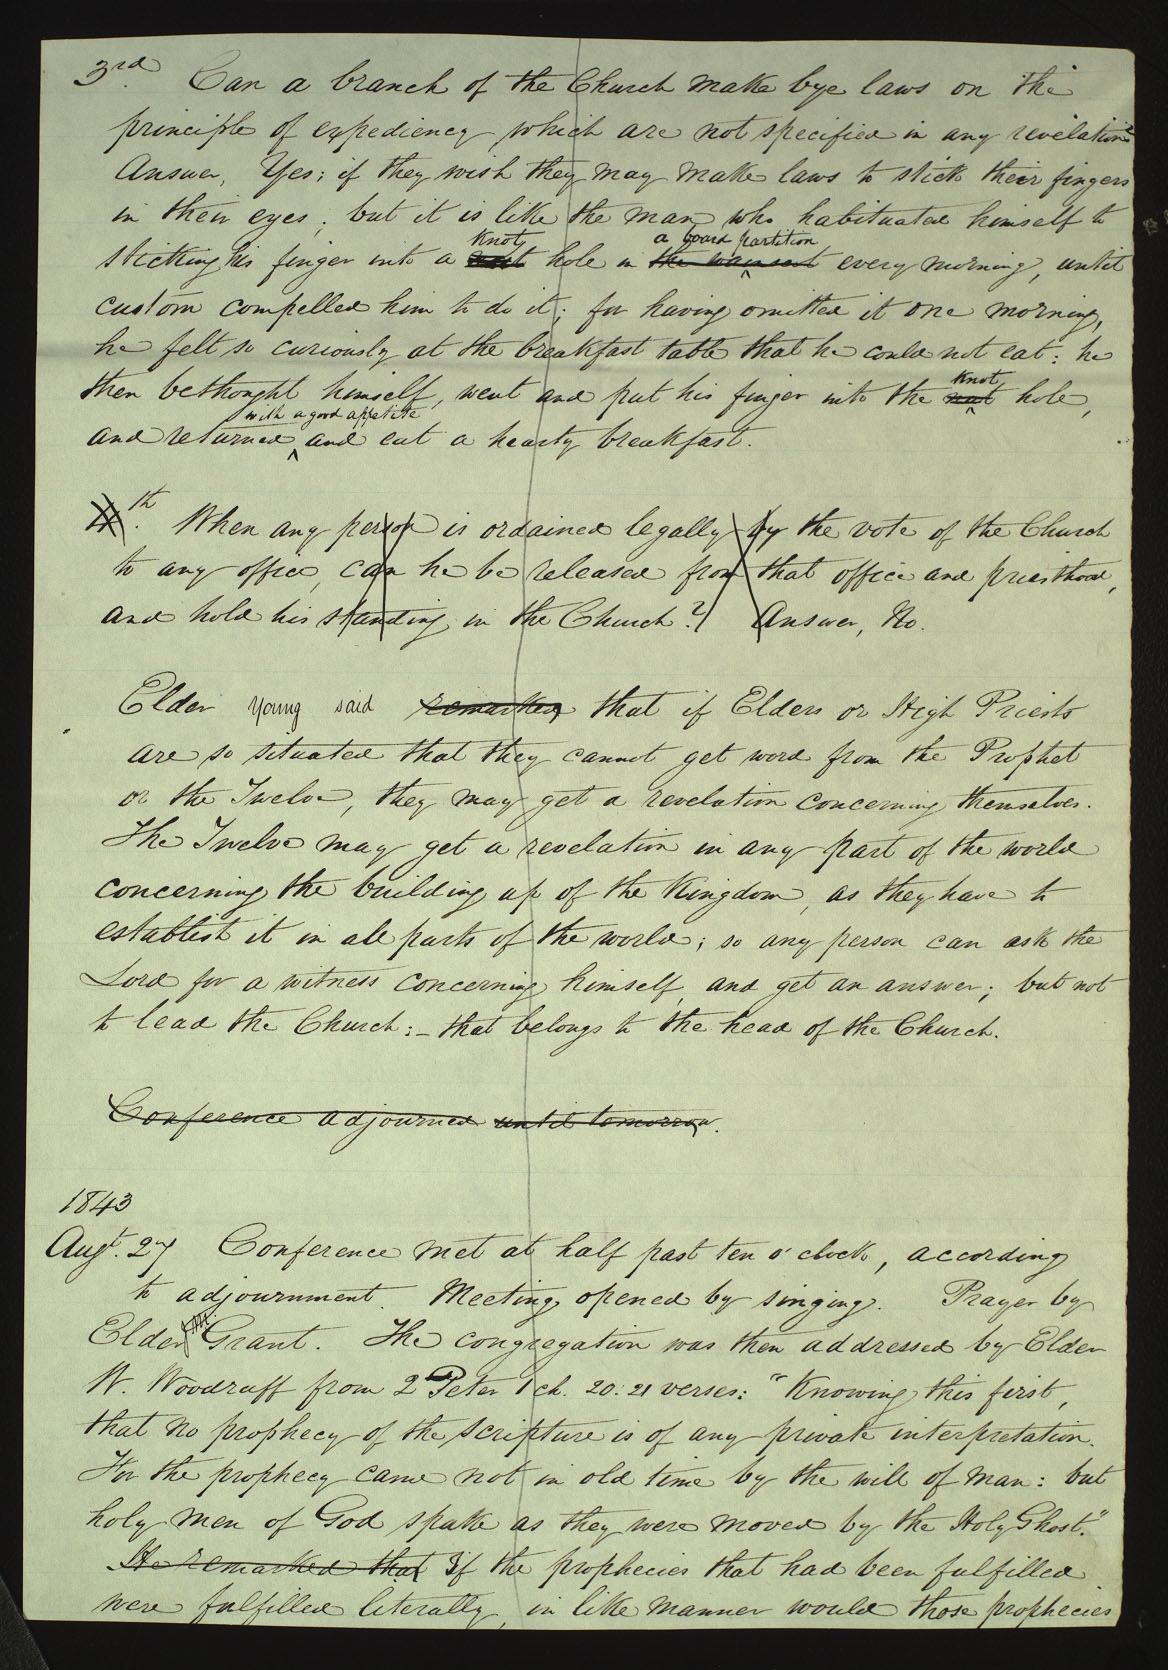 3rd. Can a branch of the Church make bye laws on the
principle of expediency which are not specified in any revelations
Answer, Yes; if they wish they may make laws to stick their fingers
in their eyes; but it is like the man who habituated himself to
knot a board partition
sticking his finger into a nut hole in the wainscot every morning, until
custom compelled him to do it; for having omitted it one morning,
he felt so curiously at the breakfast table that he could not eat: he
knot
then bethought himself, went and put his finger into the nut hole,
with a good appetite
and returned, and eat a hearty breakfast.
4th. When any person is ordained legally by the vote of the Church
to any office, can he be released from that office and priesthood,
and hold his standing in the Church? Answer, No.
Elder Young said remarked that if Elders or High Priests
are so situated that they cannot get word from the Prophet
or the Twelve, they may get a revelation concerning themselves.
The Twelve may get a revelation in any part of the world
concerning the building up of the Kingdom, as they have to
establish it in all parts of the world; so any person can ask the
Lord for a witness concerning himself, and get an answer; but not
to lead the Church:- that belongs to the head of the Church.
Conference adjourned until tomorrow.
1843
Augt. 27 Conference met at half past ten o'clock, according
to adjournment. Meeting opened by singing. Prayer by
Elder Grant. The congregation was then addressed by Elder
W. Woodruff from 2 Peter 1 ch. 20: 21 verses: "Knowing this first,
that no prophecy of the scripture is of any private interpretation.
For the prophecy came not in old time by the will of man: but
holy men of God spake as they were moved by the Holy Ghost."
He remarked that If the prophecies that had been fulfilled
were fulfilled literally, in like manner would those prophecies